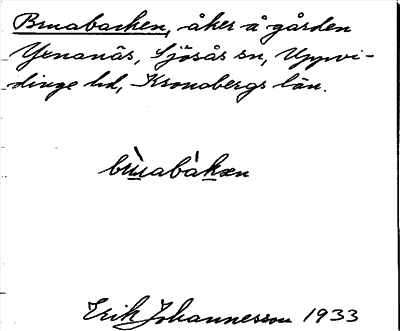 Bruabacken, åker å gården
Yxnanäs, Sjösås sn, Uppvi-
dinge hd, Kronobergs län.
brùabàkæn
Erik Johannesson 1933